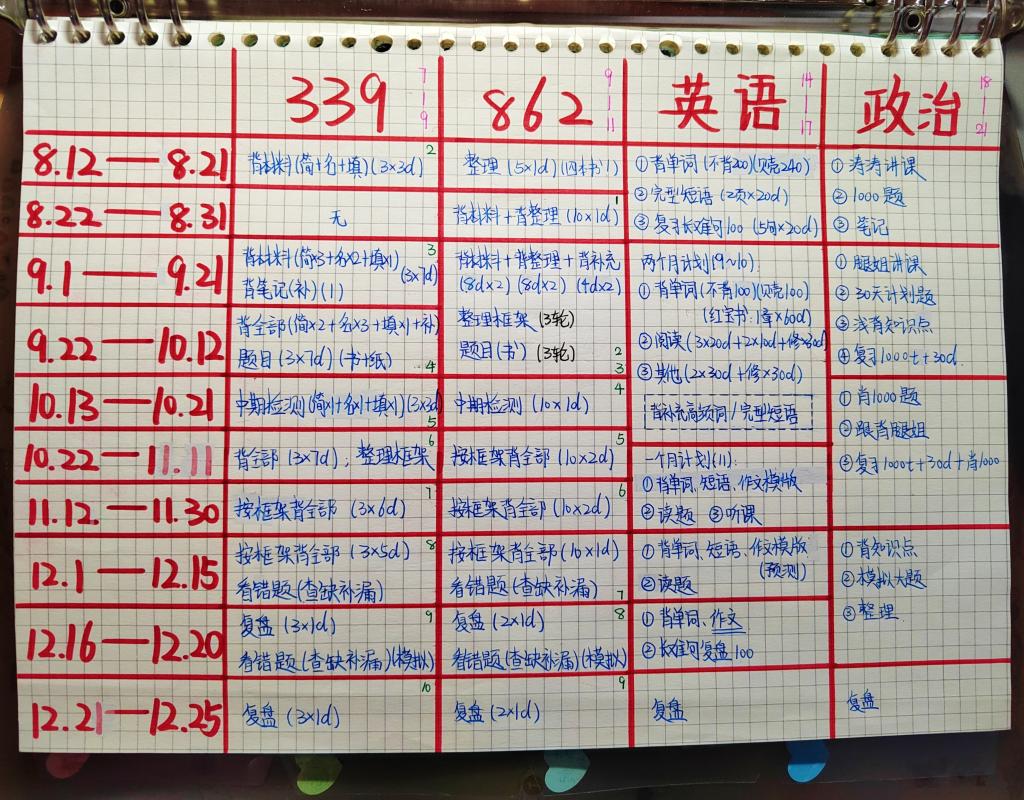 339
7
|
9
862
9
|
11
英语
14
|
17
政治
18
|
21
8.12—8.21
背材料(简+名+填)(3×3d)
2
整理(5×1d)(四本书1)
①背单词(不背200)(贝壳240)
②完型短语(2页×20d)
③复习长难句100(5句×20d)
①涛涛讲课
②1000题
③笔记
8.22—8.31
无
背材料+背整理(10×1d)
1
9.1—9.21
背材料(简×3+名×2+填×1)
(3×7d)
背笔记(补)(1)
3
背材料+背整理+背补充
(8d×2)(8d×2)(4d×2)
两个月计划(9~10):
①背单词(不背100)(贝壳100)
(红宝书:1章×60d)
②阅读(3×20d+2×10d+修×30d)
③其他(2×30d+修×30d)
背补充高频词/完型短语
①腿姐讲课
②30天计划题
③浅背知识点
④复习1000t+30d
9.22—10.12
背全部(简×2+名×3+填×1+补)
题目(3×7d)(书+纸)
4
整理框架(3轮)
题目(书)(3轮)
2
3
10.13—10.21
中期检测(简×1+名×1+填×1)(3×3d)
5
中期检测(10×1d)
4
①肖1000题
②跟背腿姐
③复习1000t+30d+肖1000
10.22—11.11
背全部(3×7d);整理框架
6
按框架背全部(10×2d)
5
一个月计划(11):
①背单词、短语、作文模版
②读题 ③听课
11.12.—11.30
按框架背全部(3×6d)
7
按框架背全部(10×2d)
6
12.1—12.15
按框架背全部(3×5d)
看错题(查缺补漏)
8
按框架背全部(10×1d)
看错题(查缺补漏)
7
①背单词、短语、作文模版
(预测)
②读题
①背知识点
②模拟大题
③整理
12.16—12.20
复盘(3×1d)
看错题(查缺补漏)(模拟)
9
复盘(2×1d)
看错题(查缺补漏)(模拟)
8
①背单词、作文
②长难句复盘100
12.21—12.25
复盘(3×1d)
10
复盘(2×1d)
9
复盘
复盘